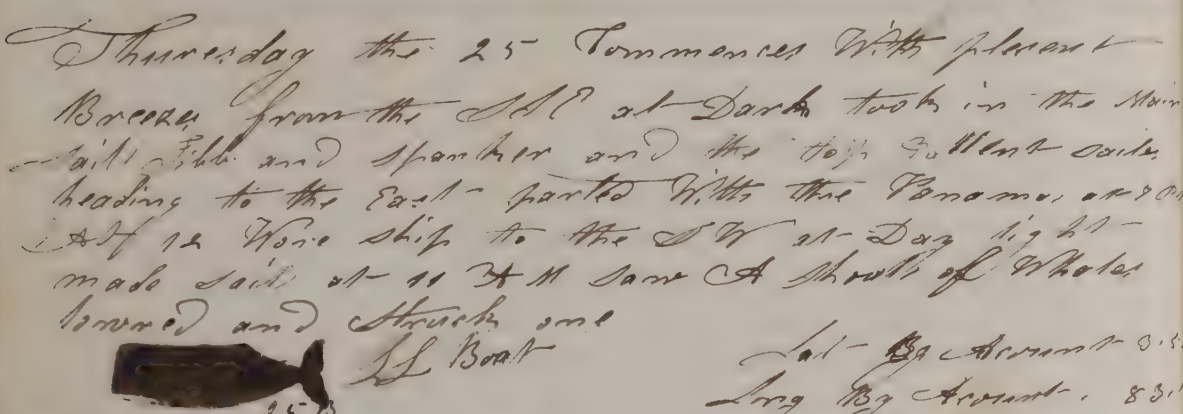 Thuresday the 25 Commences With plesent
Breezes from the SSE at Dark took in the Main
sail Jibb and spanker and the top Gallent sailes
heading to the East parted With the Panama, at
At 12 Wore ship to the SW at Day light
made sail at 11 AM saw A shoall of Whales
lowred and Struck one
Boat
25 B
Lat By Acount 3
Lng By Acount. 83